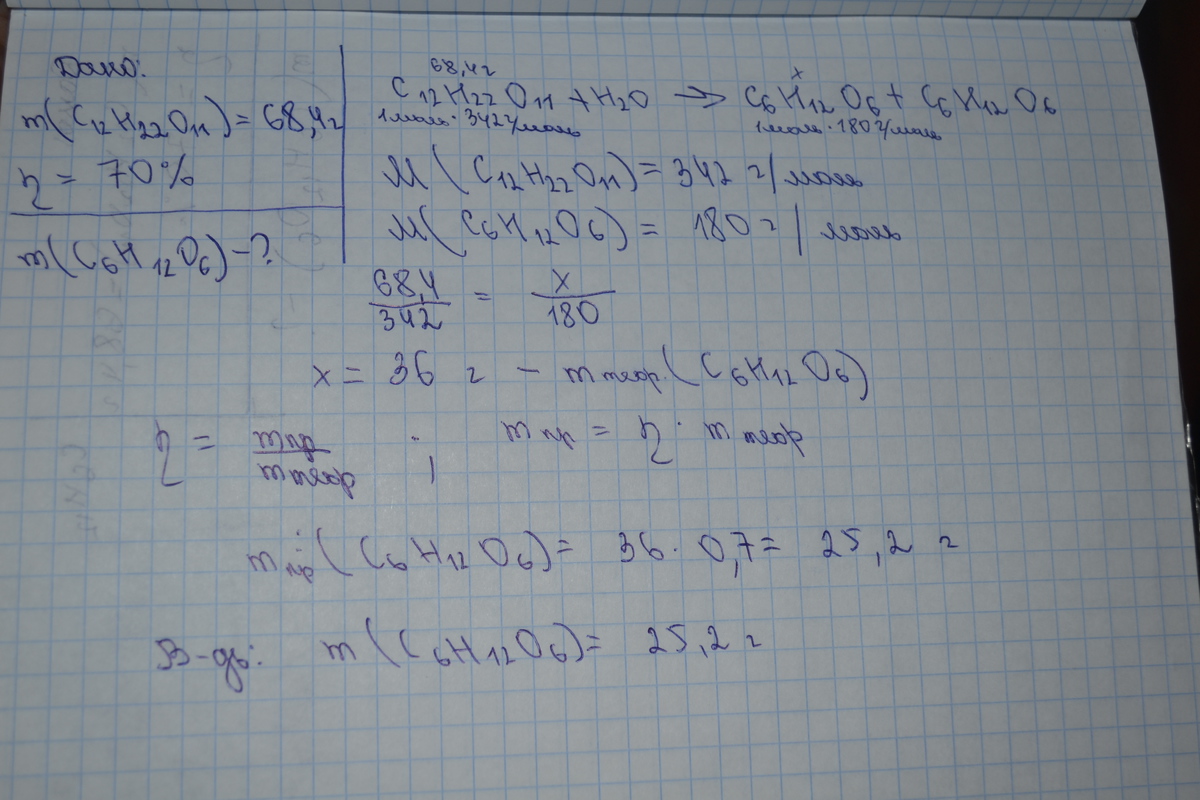 Дано:
m(C12H22O11) = 68,4 г
η = 70%
m(C6H12O6) - ?
68,4 г x
C12H22O11 + H2O → C6H12O6 + C6H12O6
1 моль · 342 г/моль 1 моль · 180 г/моль
M(C12H22O11) = 342 г/моль
M(C6H12O6) = 180 г/моль
68,4/342 = x/180
x = 36 г - mтеор.(C6H12O6)
η = mпр/mтеор ; mпр = η · mтеор
mпр(C6H12O6) = 36 · 0,7 = 25,2 г
В-дь: m(C6H12O6) = 25,2 г